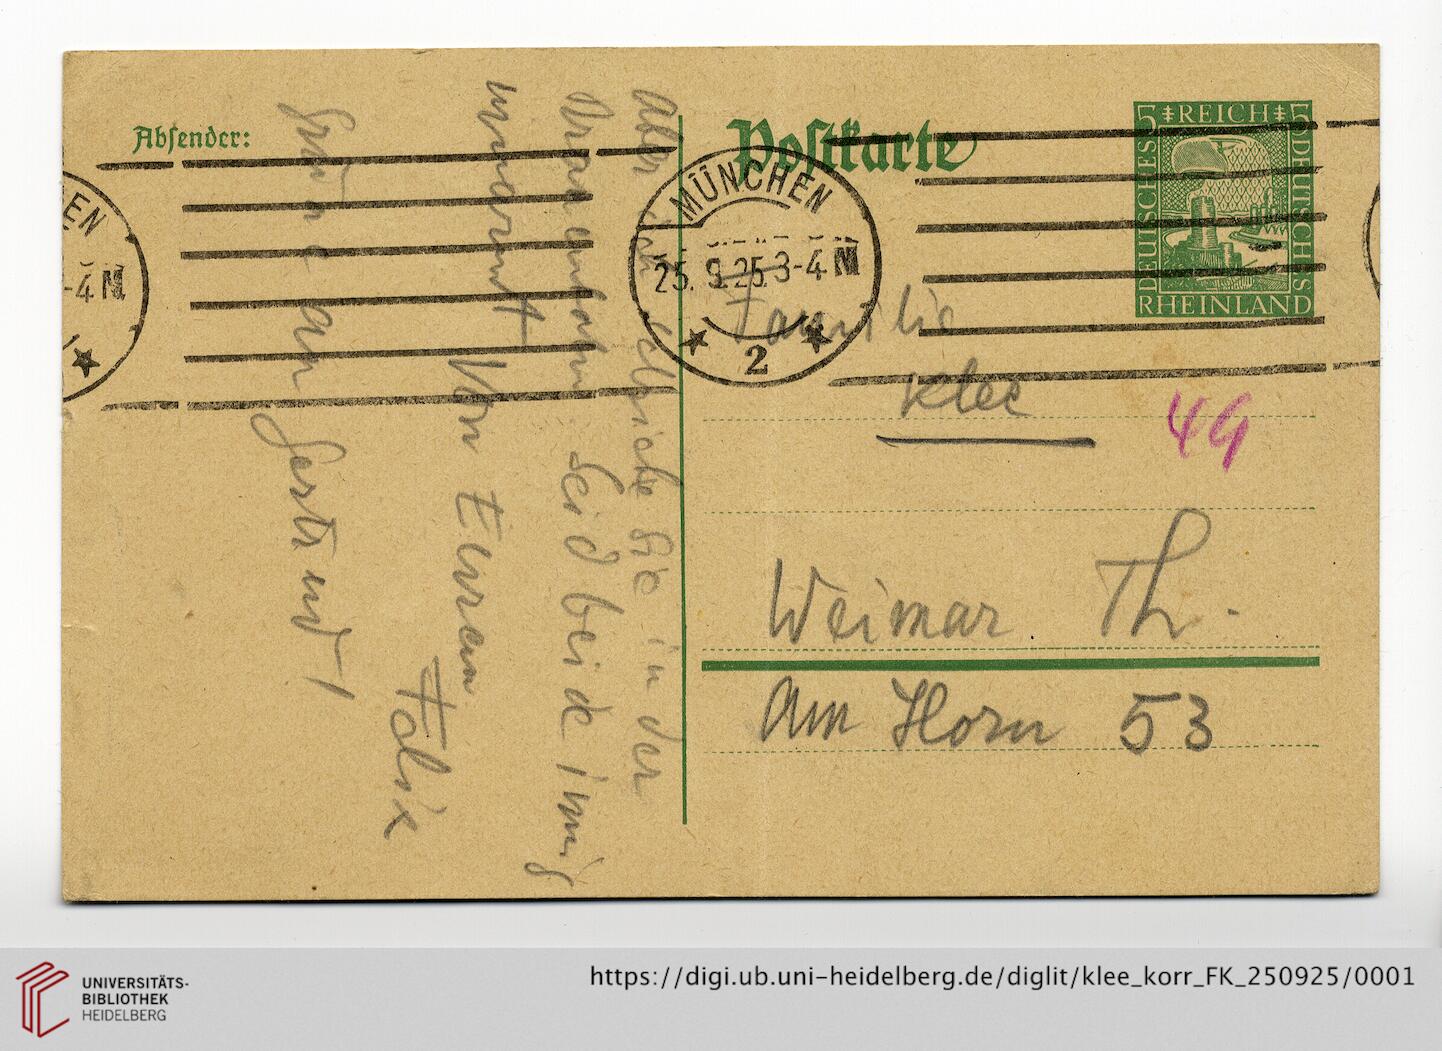 Absender:
Postkarte
5 REICH 5
DEUTSCHES
DEUTSCHES
RHEINLAND
MÜNCHEN
25. 9. 25. 3-4 N
2
EN
-4 N
Aber ich schicke sie in der
umfohn. Seid beide innig
umarmt
Von Eurem
Felix
Grüße an Gertr und
Familie
Klee
49
Weimar Th.
Am Horn 53
UNIVERSITÄTS-
BIBLIOTHEK
HEIDELBERG
https://digi.ub.uni-heidelberg.de/diglit/klee_korr_FK_250925/0001